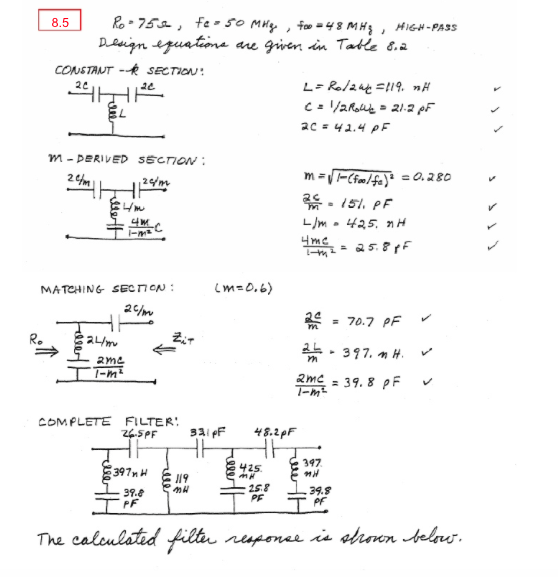 8.5
R₀ = 75Ω, fc = 50 MHz, f∞ = 48 MHz, HIGH-PASS
Design equations are given in Table 8.2
CONSTANT -k SECTION:
2C 2C
L
L = R₀/2ωc = 119. nH ✓
C = 1/2R₀ωc = 21.2 pF ✓
2C = 42.4 pF ✓
m - DERIVED SECTION:
2C/m 2C/m
L/m
4m/(1-m²) C
m = √(1-(f∞/fc)²) = 0.280 ✓
2C/m = 151. pF ✓
L/m = 425. nH ✓
4mC/(1-m²) = 25.8 pF ✓
MATCHING SECTION: (m=0.6)
2C/m
R₀ 2L/m ZiT
2mC/(1-m²)
2C/m = 70.7 pF ✓
2L/m = 397. nH. ✓
2mC/(1-m²) = 39.8 pF ✓
COMPLETE FILTER:
26.5 pF 33.1 pF 48.2 pF
397 nH 119 nH 425. nH 397. nH
39.8 pF 25.8 pF 39.8 pF
The calculated filter response is shown below.